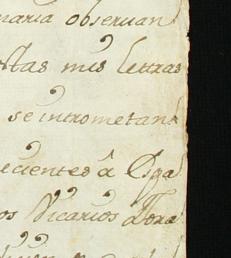 naria observan
estas mis letras
se intrometan
ecientes â Espa
os Vicarios Fora